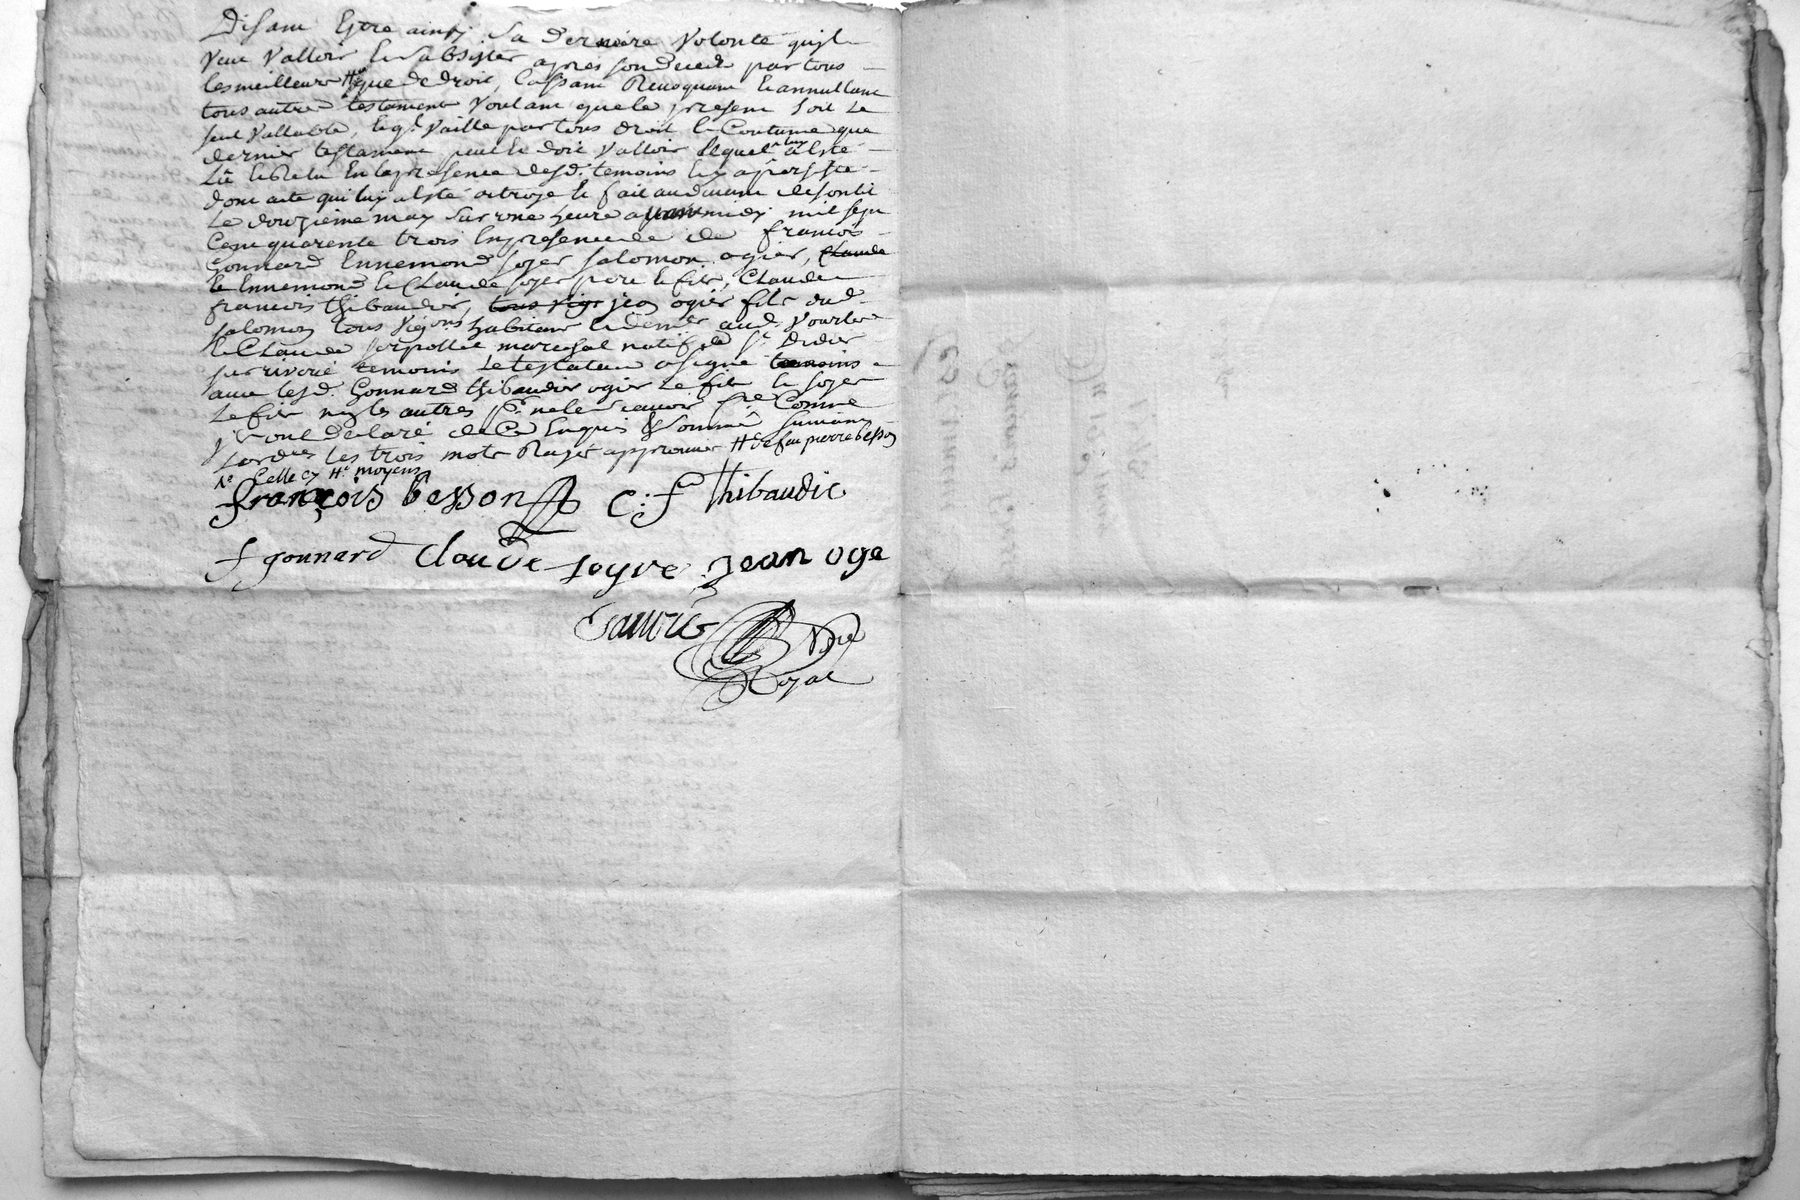 Disant Estre ainsy sa derniere volonté qu'jl
veut valloir et subsister apres son deced par tous
les meilleurs # que de droit, Cassant Revoquant et annullant
tous autres testament voulant que le present soit le
seul vallable, et q.l vaille par tous droit et Coutume que
dernier testament peut et doit valloir lequel a luy a Esté
Lû et Relu En la presence desd. temoins et y a persisté
dont acte qui luy a esté octroyé et fait audevant
Le douzieme may sur une heure avant midy mil sept
Cent quarente trois En presence de francois
Gonnard Ennemond soyer salomon ogier, Claude
et Ennemond et Claude soyer pere et fils, Claude
francois thibaudier, jean ogier fils dud.
salomon tous vignrons habitant audt. vourles
et Claude marechal natif de st. Didier
sur rivoire temoins Le testateur a signé temoins
avec lesd. Gonnard thibaudier ogier le fils et soyer
Le fils non les autres pr. ne le scavoir fre. Comme
jls ont declaré de Ce Enquis & sommé suivant
Lordces. les trois mots Rayés approuver # de feu pierre besson
Celle cy #e moyens
françois besson C: f Thibaudie
f gonnard Claude soyre jean oge
Nre
Royal